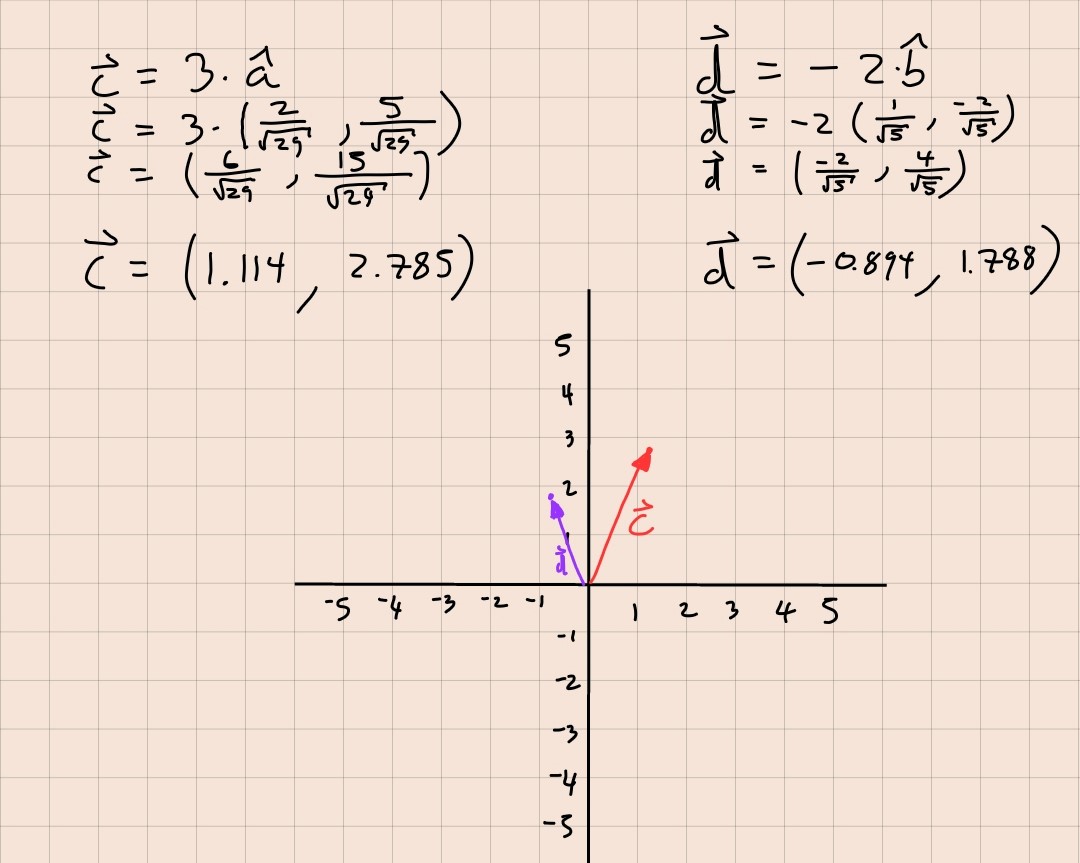 c⃗ = 3·â
c⃗ = 3·(2/√29, 5/√29)
c⃗ = (6/√29, 15/√29)
c⃗ = (1.114, 2.785)
d⃗ = -2·b̂
d⃗ = -2(1/√5, -2/√5)
d⃗ = (-2/√5, 4/√5)
d⃗ = (-0.894, 1.788)
5
4
3
2
1
c⃗
d⃗
-5 -4 -3 -2 -1 1 2 3 4 5
-1
-2
-3
-4
-5